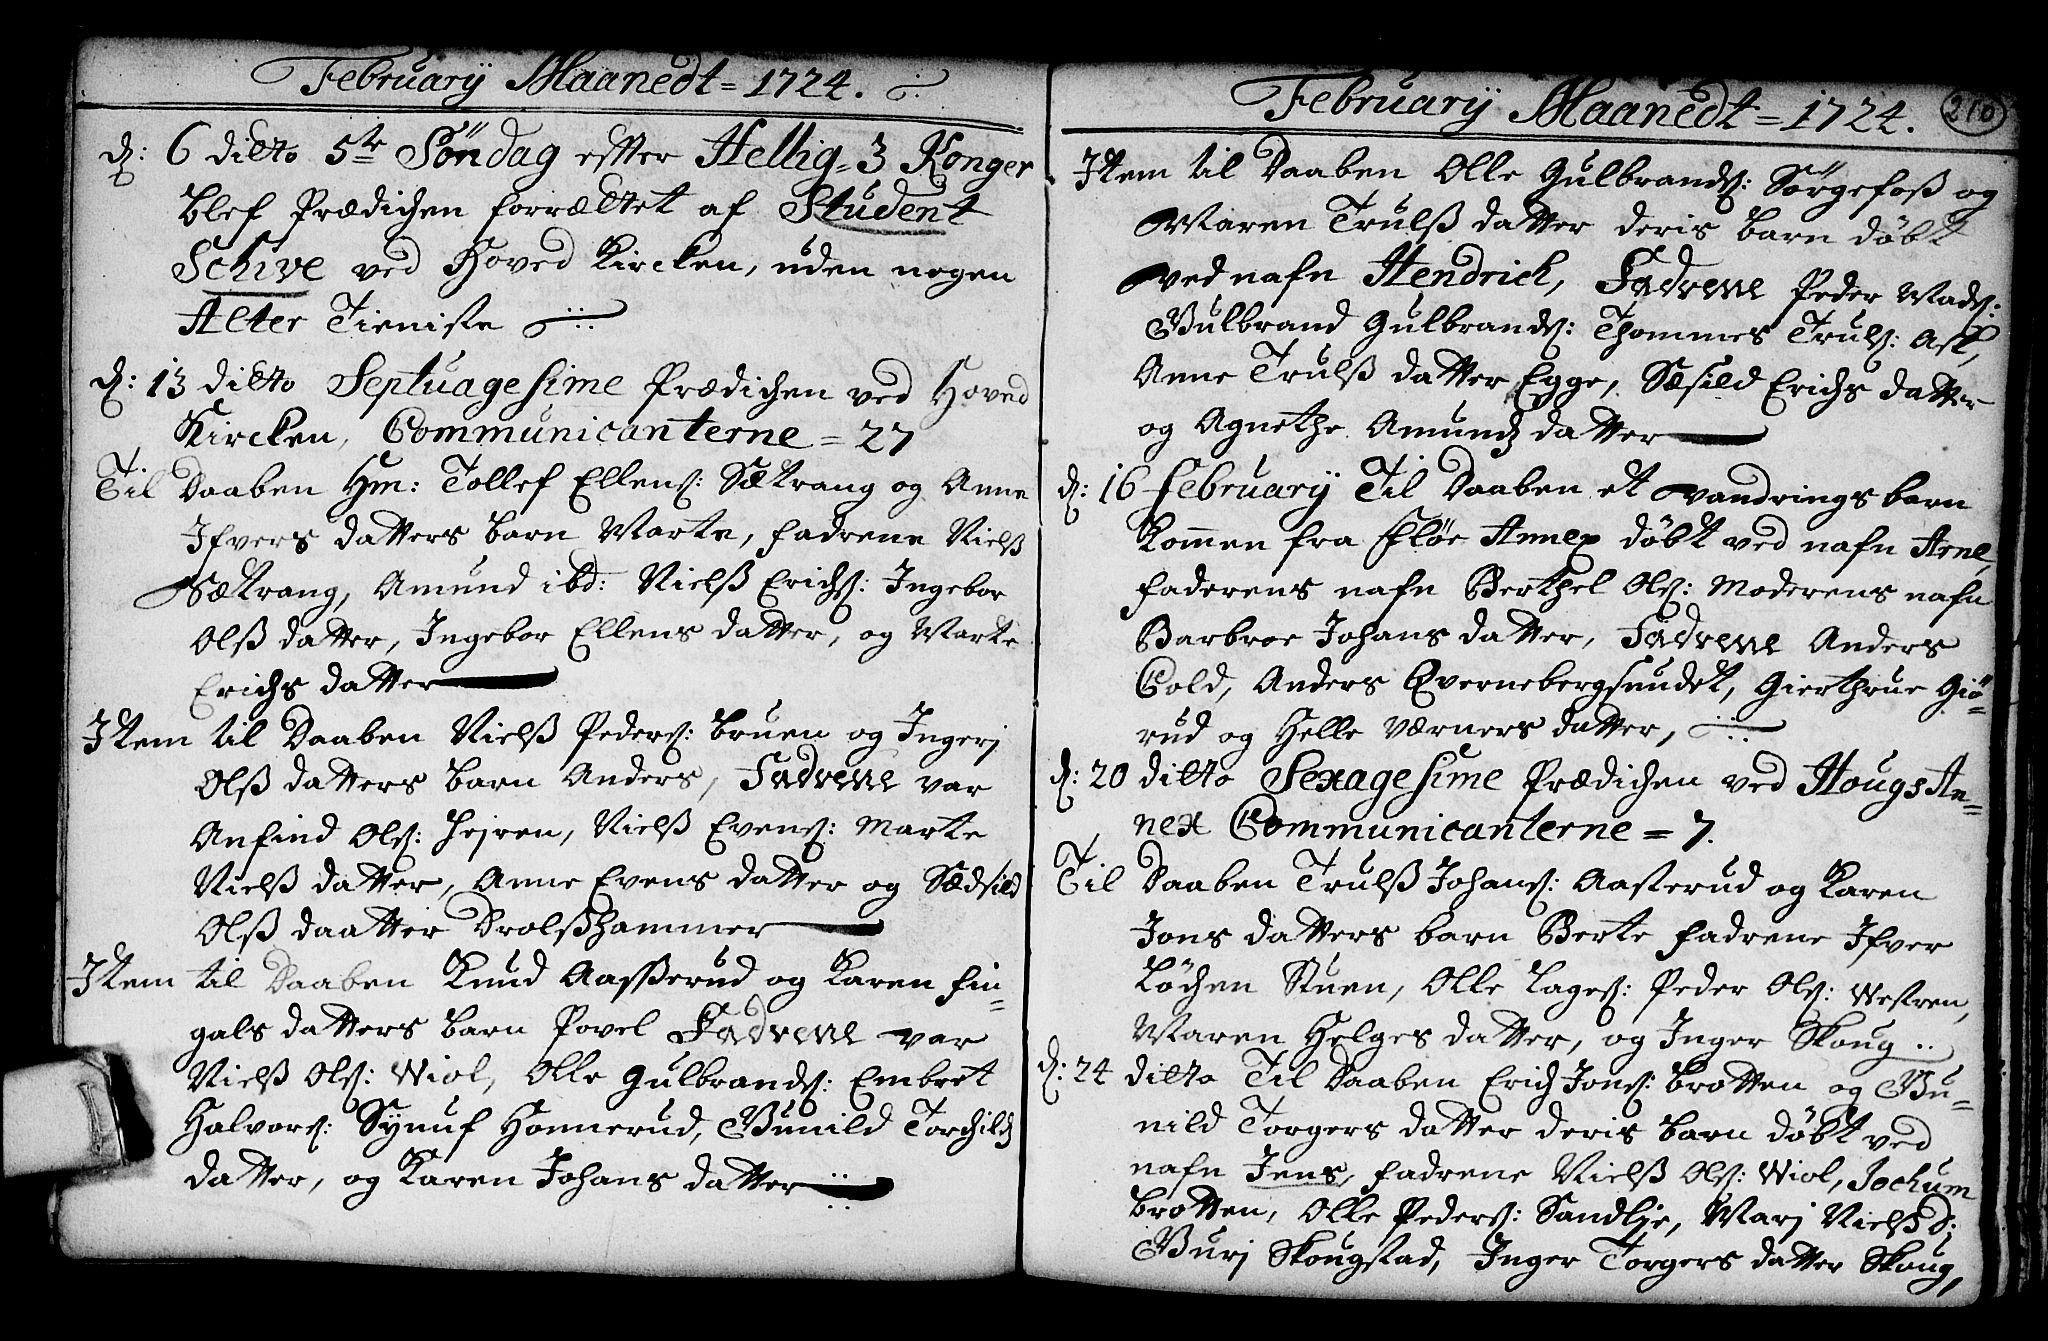 Februarij Maanedt = 1724.
d: 6 dito 5te Söndag effter Hellig=3 Konger
blef Prædichen forrættet af Student
Schive ved Hoved Kircken, uden nogen
Alter Tieniste
d: 13 dito Septuagesime Prædichen ved Hoved
Kircken, Communicanterne = 27
Til Daaben Hm: Tollef Ellens: Sætrang og Anne
Ifvers datters barn Marte, fadrene Nielß
Sætrang, Amund ibd: Nielß Erichs: Ingebor
Olß datter, Ingebor Ellens datter, og Marte
Erichs datter
Item til Daaben Nielß Peders: bruen og Ingerj
Olß datters barn Anders, Fadrene var
Anfind Ols: Hejren, Nielß Evens: Marte
Nielß datter, Anne Evens datter og Sædsild
Olß daatter Drolßhammer
Item til Daaben Knud Aaßerud og Karen fin=
gals datters barn Povel Fadrene var
Nielß Ols: Wiol, Olle Gulbrands: Embret
Halvors: Synuf Honnerud, Gunild Torchilds
datter, og Karen Johans datter
Februarij Maanedt = 1724.
210
Item til Daaben Olle Gulbrands: Sörgefoß og
Maren Trulß datter deris barn döbt
ved nafn Hendrich, Fadrene Peder Mads:
Gulbrand Gulbrands: Thommes Truls: Ask,
Anne Trulß datter Egge, Sæsild Erichs datter
og Agnethe Amunds datter
d: 16 februarij Til Daaben et vandrings barn
kommen fra Fløe Annex döbt ved nafn Arne,
faderens nafn Berthel Ols: Moderens nafn
Barbroe Johans datter, Fadrene Anders
Gold, Anders Qvernebergsundet, Gierthrue Giö=
rud og Helle Værners datter,
d: 20 dito Sexagesime Prædichen ved Hougs An=
nex Communicanterne = 7.
Til Daaben Trulß Johans: Aasterud og Karen
Jons datters barn Berte fadrene Ifver
Löchen Stuen, Olle Lages: Peder Ols: Westren,
Maren Helges datter, og Inger Skoug ..
d: 24 dito Til Daaben Erich Jons: bråtten og Gu=
nild Torgers datter deris barn döbt ved
nafn Jens, fadrene Nielß Ols: Wiol, Jochum
bråtten, Olle Peders: Sandlje, Marj Nielß D:
Gurj Skougstad, Inger Torgers datter Skoug,